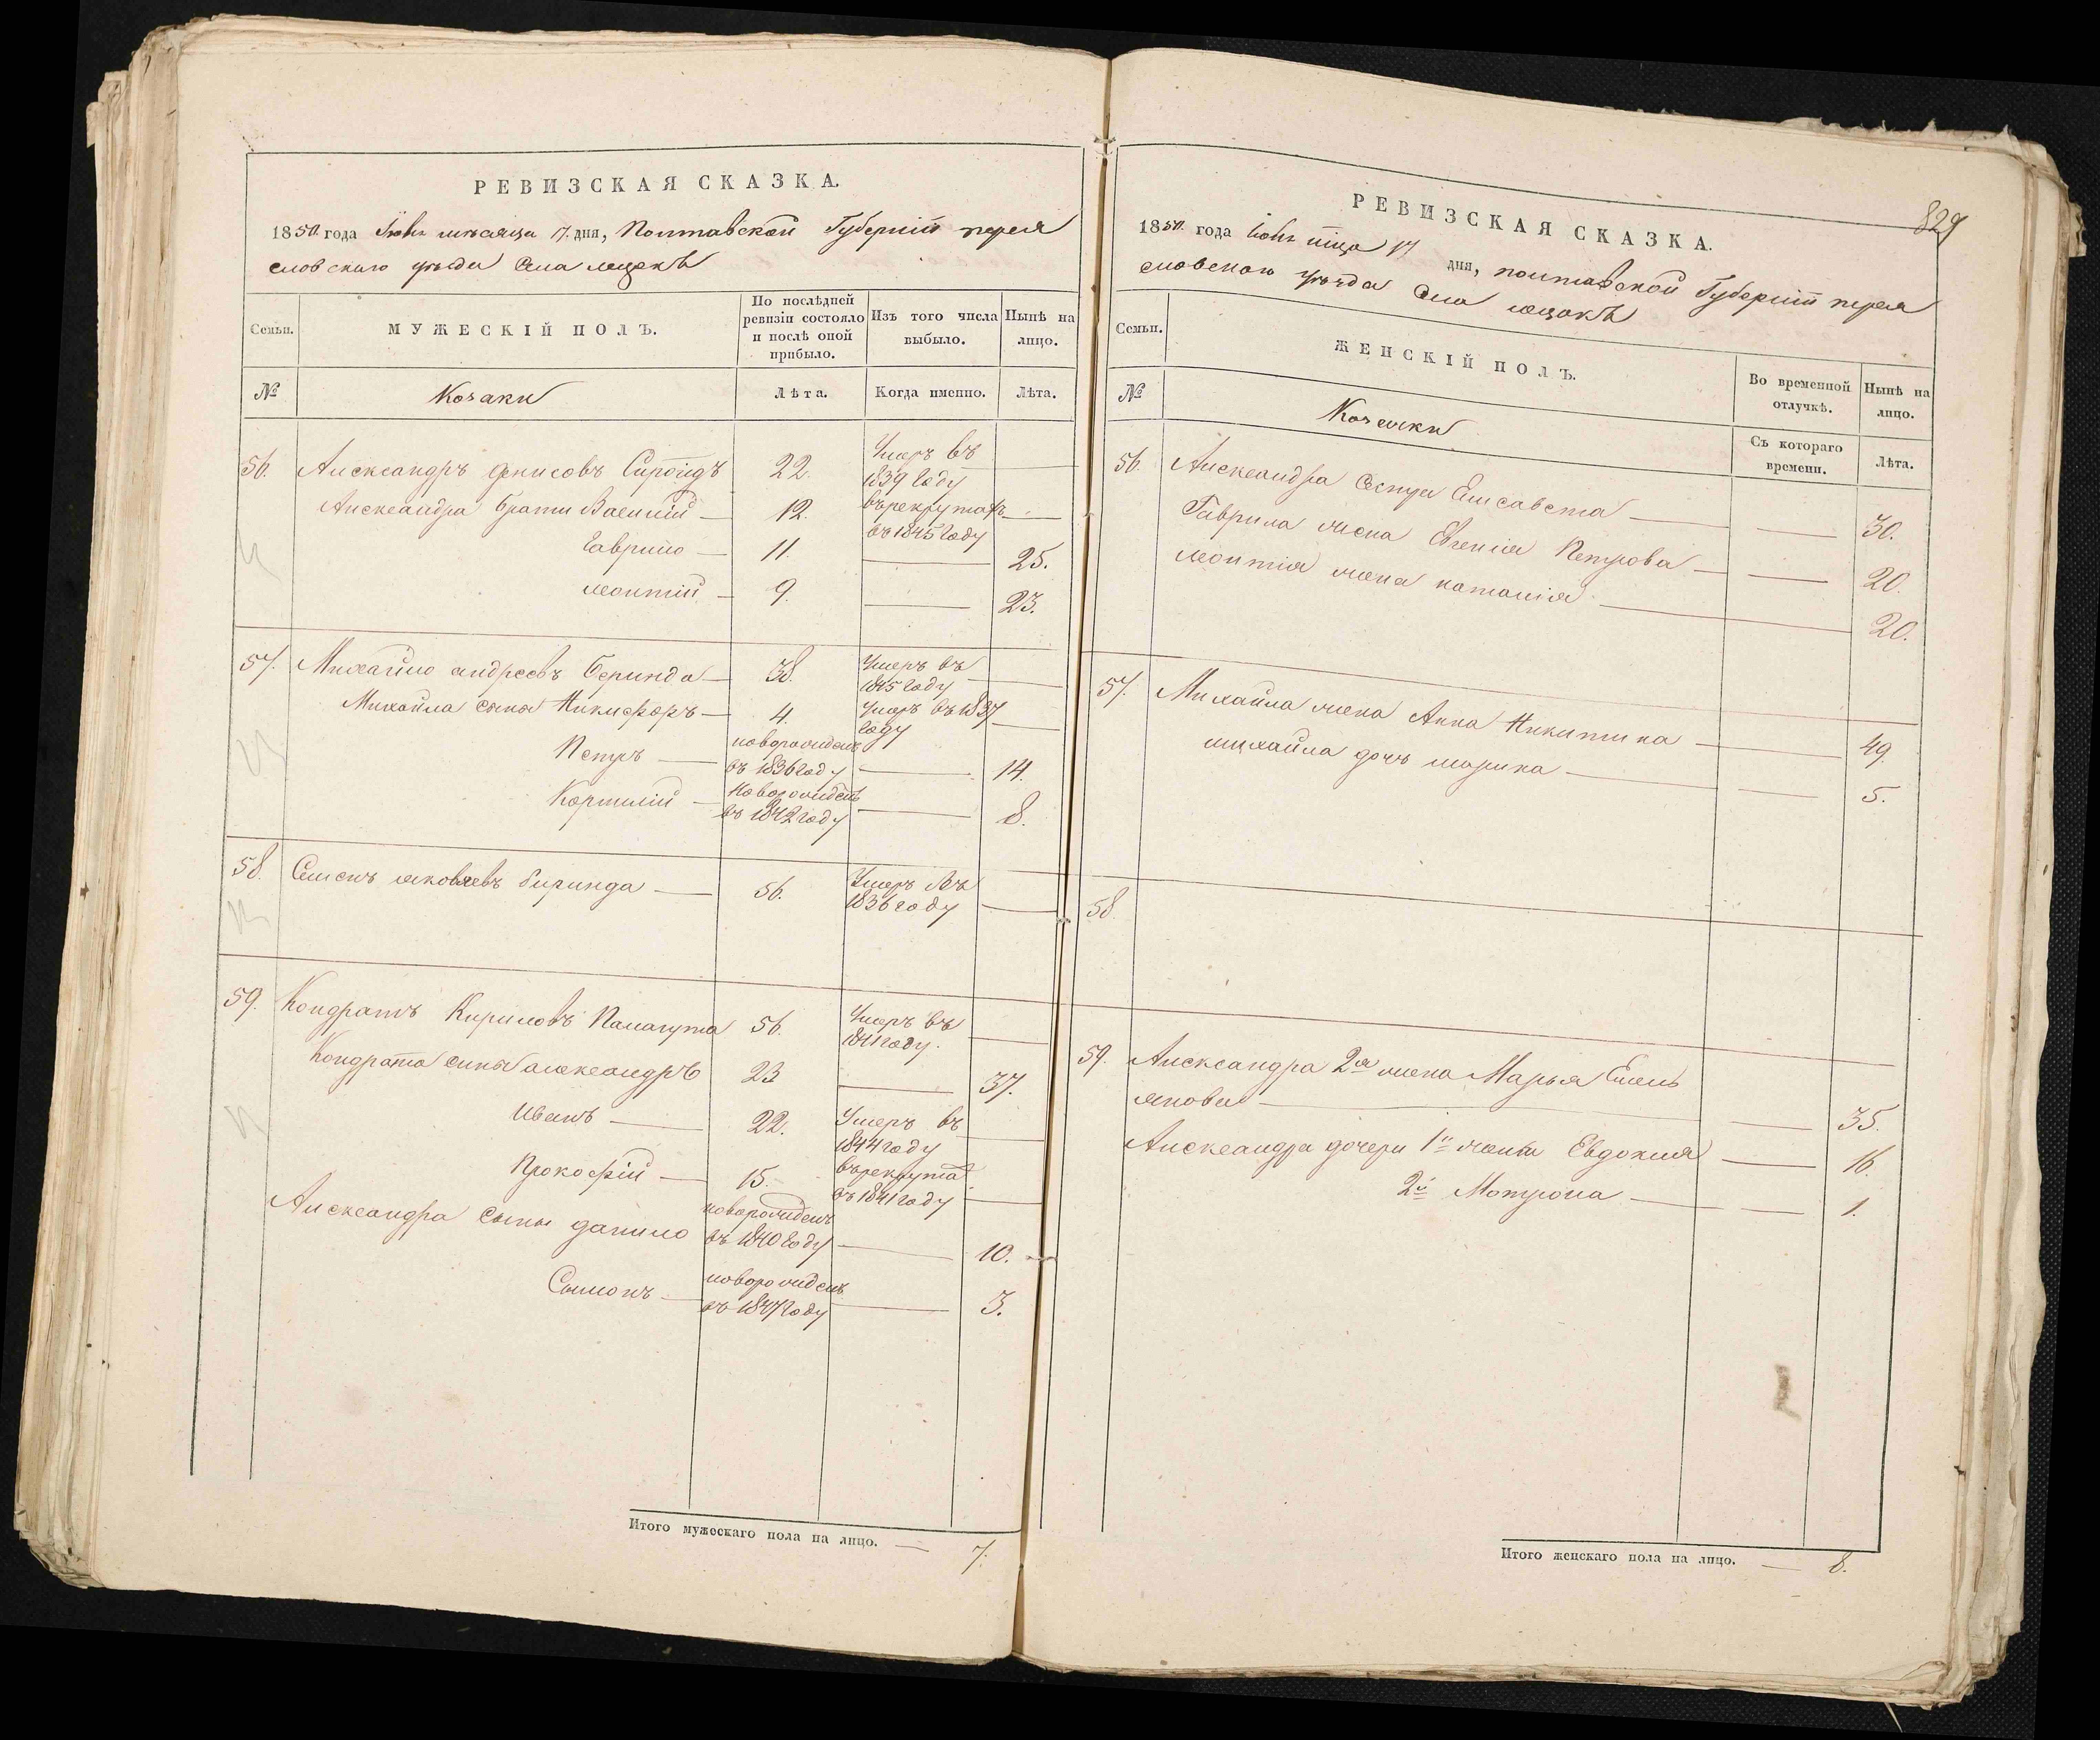 РЕВИЗСКАЯ СКАЗКА.
1850. года Іюнь мѣсяца 17. дня, Полтавской Губерніи перея
словскаго уѣзда Села
Семьи.
МУЖЕСКІЙ ПОЛЪ.
По послѣдней ревизіи состояло и послѣ оной прибыло.
Изъ того числа выбыло.
Нынѣ на лицо.
№
Козаки
Лѣта.
Когда именно.
Лѣта.
56. Александръ Денисовъ Сироідъ 22. Умеръ въ 1839 году
Александра братьи Василій 12. въ рекрутахъ въ 1845 году
Гаврило 11. 25.
Леонтій 9. 23.
57. Михайло андреевъ беринда 38. Умеръ въ 1845 году
Михайла сыны Никифоръ 4. Умеръ въ 1837 году
Петръ новорожденъ въ 1836 году 14.
Корнилій новорожденъ въ 1842 году 8.
58. Семенъ яковлевъ биринда 56. Умеръ въ 1836 году
59. Кондратъ Кириловъ 56. Умеръ въ 1841 году.
Кондрата сыны александръ 23 37.
Иванъ 22. Умеръ въ 1844 году
Прокофій 15. въ рекрута въ 1841 году
Александра сыны данило новорожденъ въ 1840 году 10.
Сымонъ новорожденъ въ 1847 году 3.
Итого мужескаго пола на лицо. 7.
829
РЕВИЗСКАЯ СКАЗКА.
1850. года Іюнь мца 17 дня, полтавской Губерніи перея
словского уѣзда Села
Семьи.
ЖЕНСКІЙ ПОЛЪ.
Во временной отлучкѣ.
Нынѣ на лицо.
№
Козачки
Съ котораго времени.
Лѣта.
56. Александра сестра Елисавета 30.
Гаврила жена Евгенія Петрова 20.
Леонтія жена наталія 20.
57. Михайла жена Анна Никитина 49.
михайла дочь марина 5.
58
59. Александра 2я жена Марья Емель
янова 35.
Александра дочери 1й жены Евдокия 16
2й Мотрона 1.
Итого женскаго пола на лицо. 8.